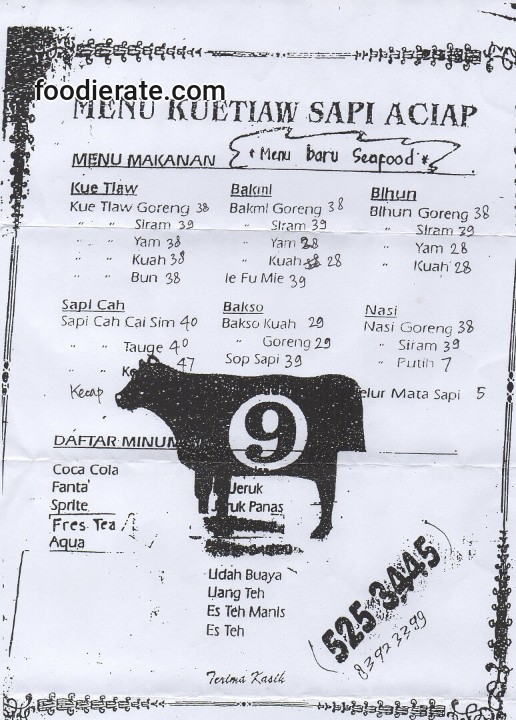 foodierate.com
MENU KUETIAW SAPI ACIAP
MENU MAKANAN
* Menu baru Seafood *
Kue Tiaw
Kue Tiaw Goreng 38
" " Siram 39
" " Yam 38
" " Kuah 38
" " Bun 38
Bakmi
Bakmi Goreng 38
" Siram 39
" Yam 28
" Kuah 28
Ie Fu Mie 39
Bihun
Bihun Goreng 38
" Siram 39
" Yam 28
" Kuah 28
Sapi Cah
Sapi Cah Cai Sim 40
" " Tauge 40
" " 47
Kecap
Bakso
Bakso Kuah 29
" Goreng 29
Sop Sapi 39
Nasi
Nasi Goreng 38
" Siram 39
" Putih 7
elur Mata Sapi 5
9
DAFTAR MINUM
Coca Cola
Fanta
Sprite
Fres Tea
Aqua
Jeruk
Jeruk Panas
Lidah Buaya
Liang Teh
Es Teh Manis
Es Teh
525 3445
83923399
Terima Kasih